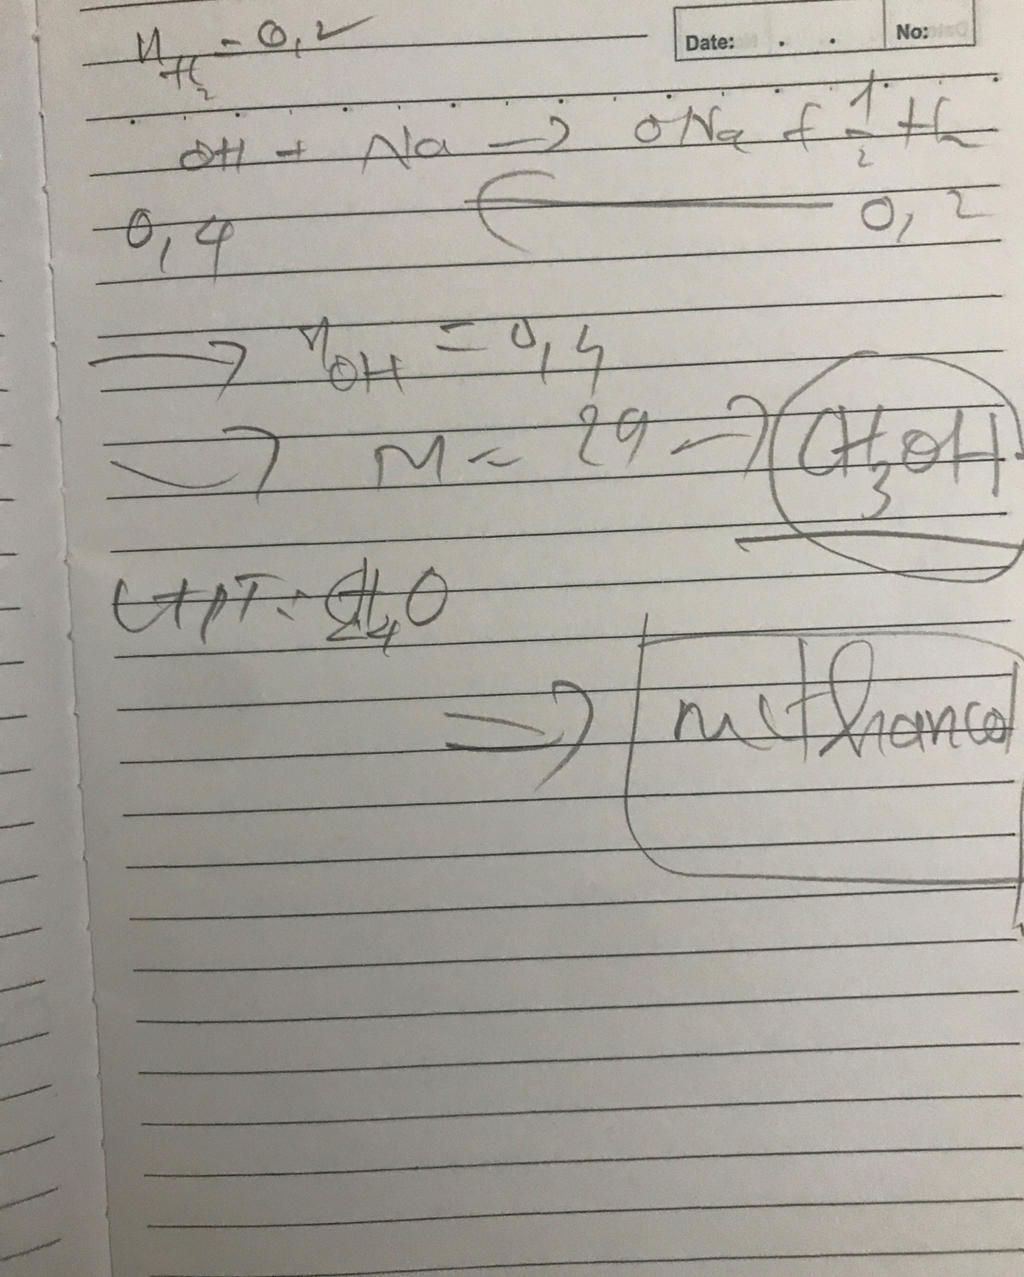 n H₂ = 0,2
Date: . . No:
OH + Na → ONa + 1/2 H₂
0,4 ← 0,2
→ n OH = 0,4
→ M = 29 → CH₃OH
CTPT: CH₄O
⇒ methanol